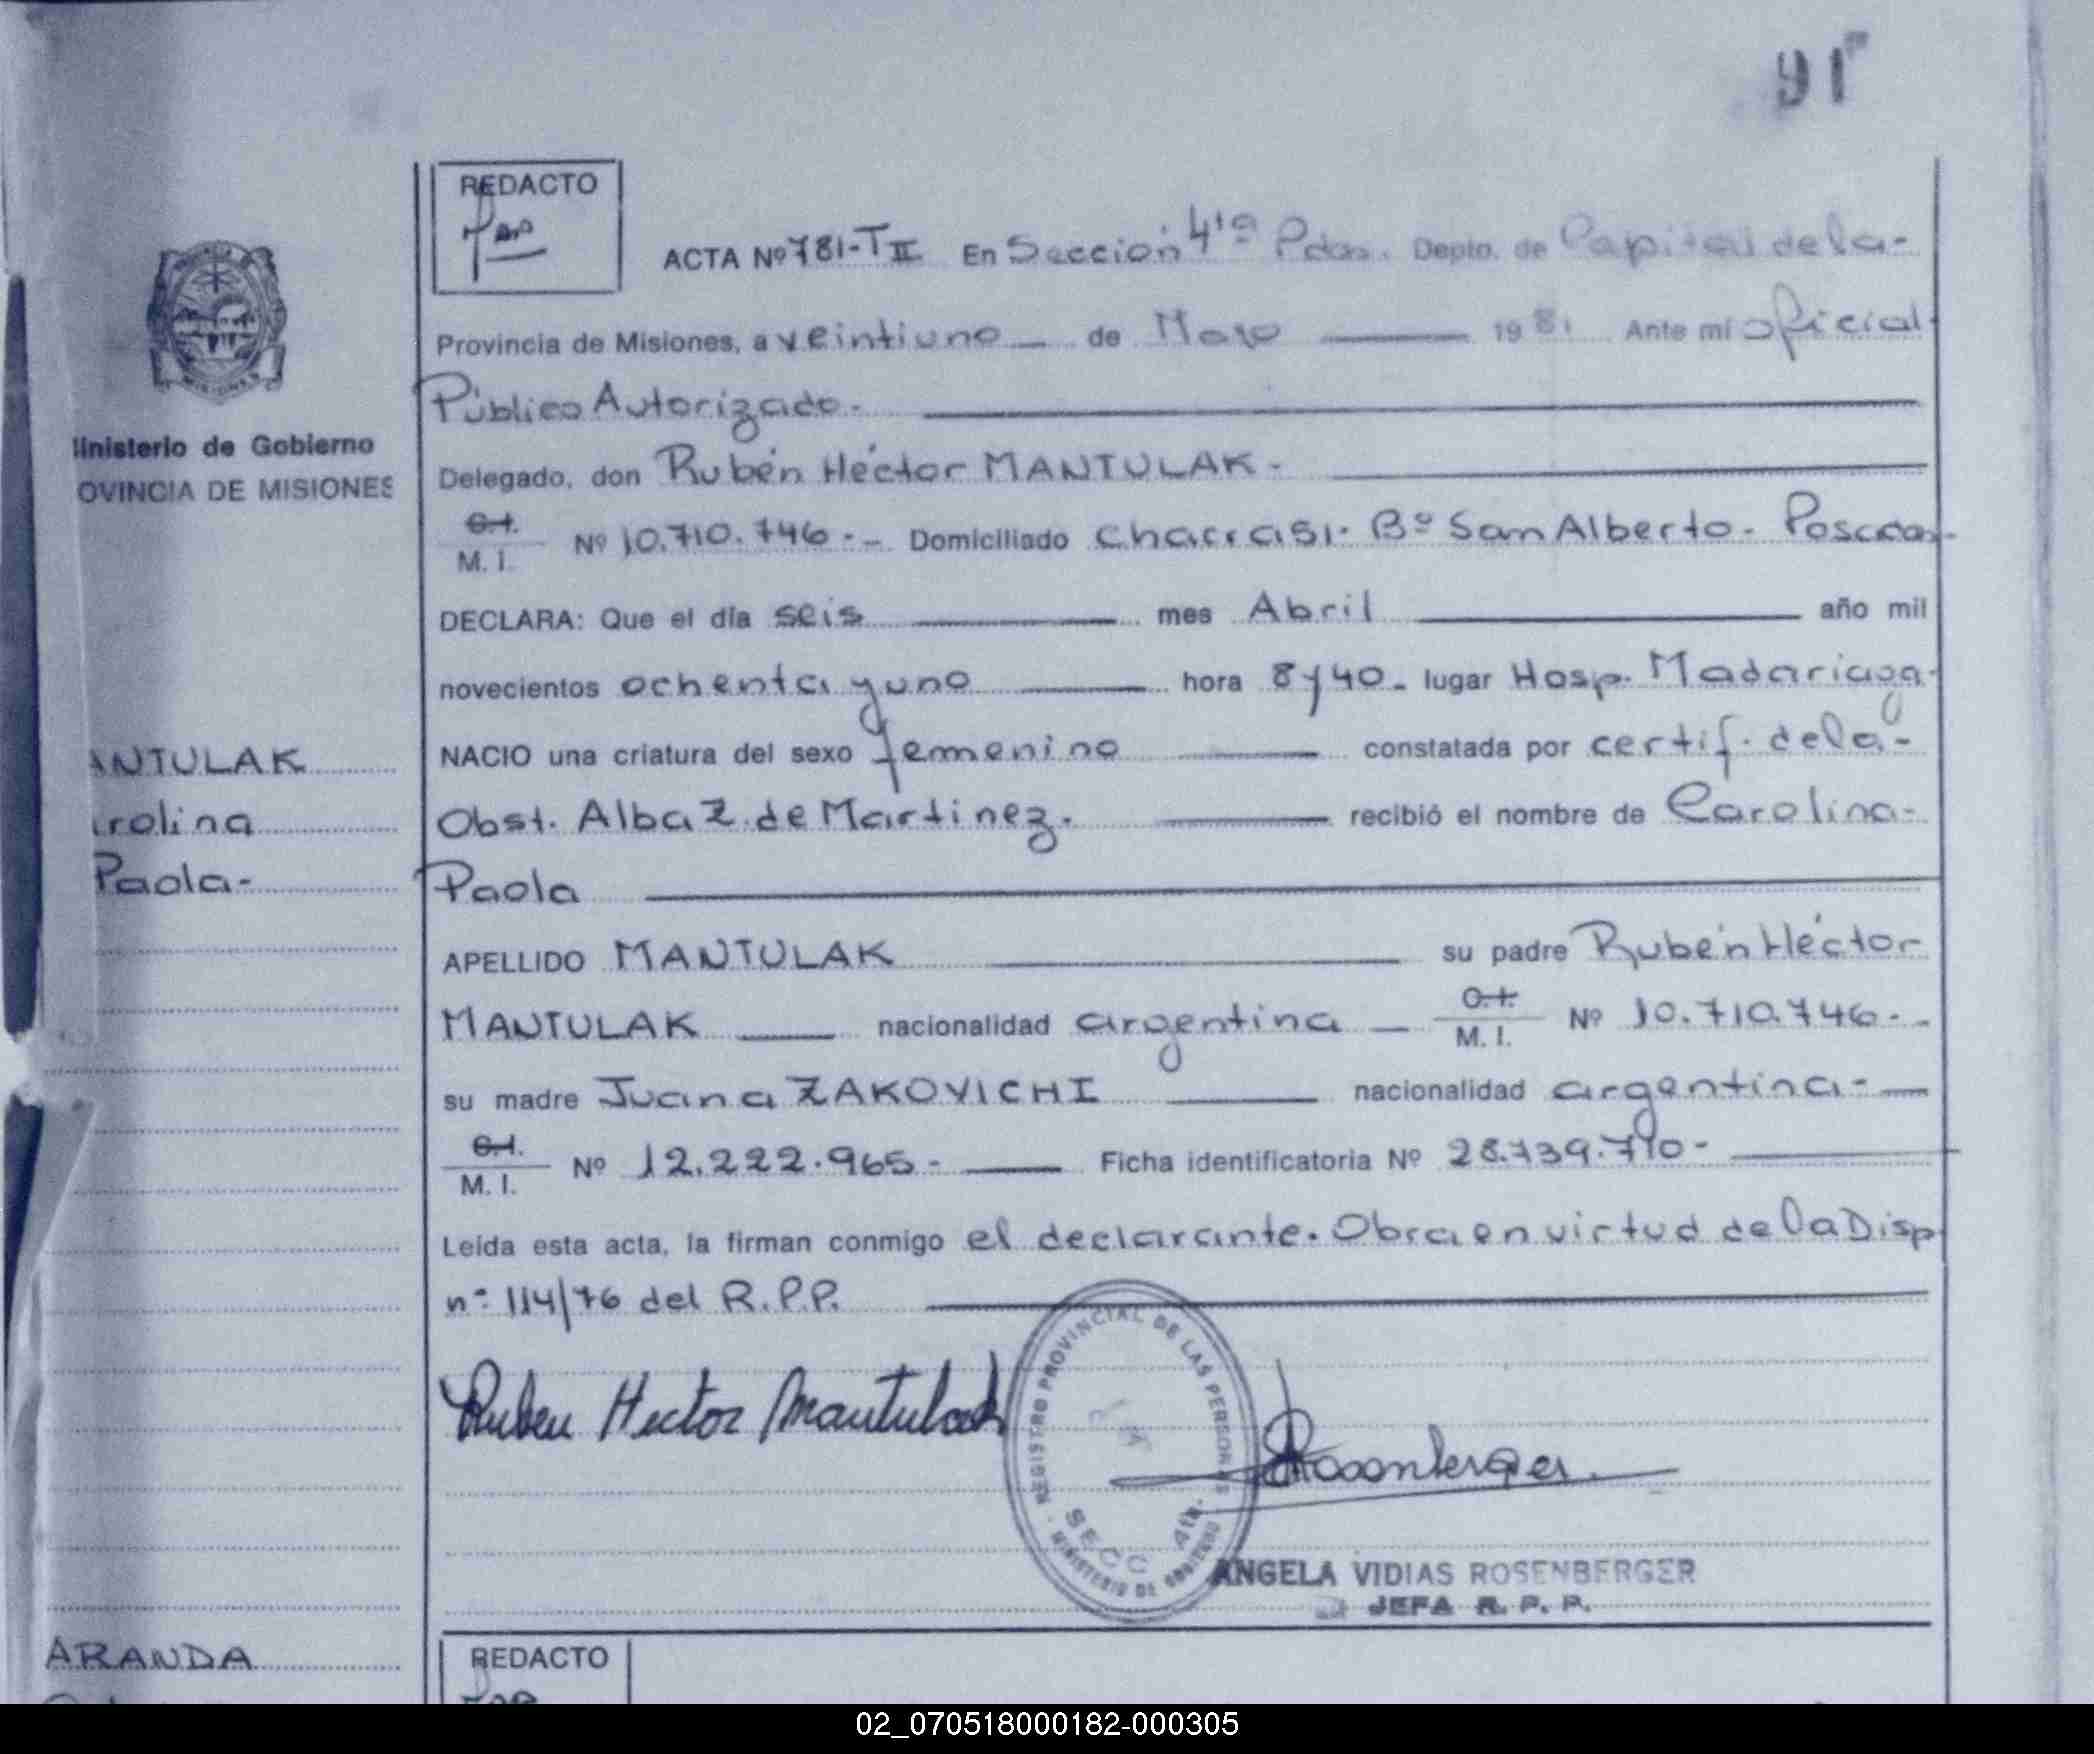 91
REDACTO
ACTA Nº 781-T II En Sección 4ta Pdas. Depto. de Capital de la-
Provincia de Misiones, a veintiuno de Mayo 1981 Ante mí oficial
Público Autorizado.
Delegado, don Rubén Héctor MANTULAK.
C.I.
M. I. Nº 10.710.746.- Domiciliado Chacra 51. Bº San Alberto. Posadas.
DECLARA: Que el día seis mes Abril año mil
novecientos ochenta y uno hora 8 y 40. lugar Hosp. Madariaga.
NACIO una criatura del sexo femenino constatada por certif. de la-
Obst. Alba Z. de Martinez. recibió el nombre de Carolina-
Paola
APELLIDO MANTULAK su padre Rubén Héctor
MANTULAK nacionalidad argentina C.I.
M. I. Nº 10.710.746.-
su madre Juana ZAKOVICHI nacionalidad argentina-
C.I.
M. I. Nº 12.222.965.- Ficha identificatoria Nº 28.739.710-
Leída esta acta, la firman conmigo el declarante. Obra en virtud de la Disp
nº 114/76 del R.P.P.
Ruben Hector Mantulak
Rosenberger
REGISTRO PROVINCIAL DE LAS PERSONAS
SECC 4ta.
MINISTERIO DE GOBIERNO
ANGELA VIDIAS ROSENBERGER
JEFA R. P. P.
MISIONES
inisterio de Gobierno
OVINCIA DE MISIONES
ANTULAK
rolina
Paola-
ARANDA
REDACTO
02_070518000182-000305